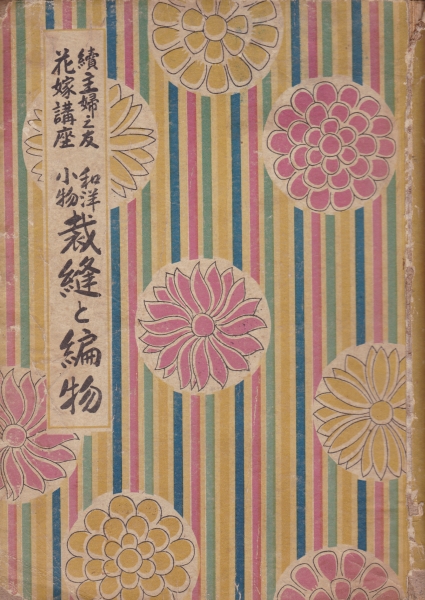 續主婦之友
花嫁講座
和洋
小物
裁縫と編物